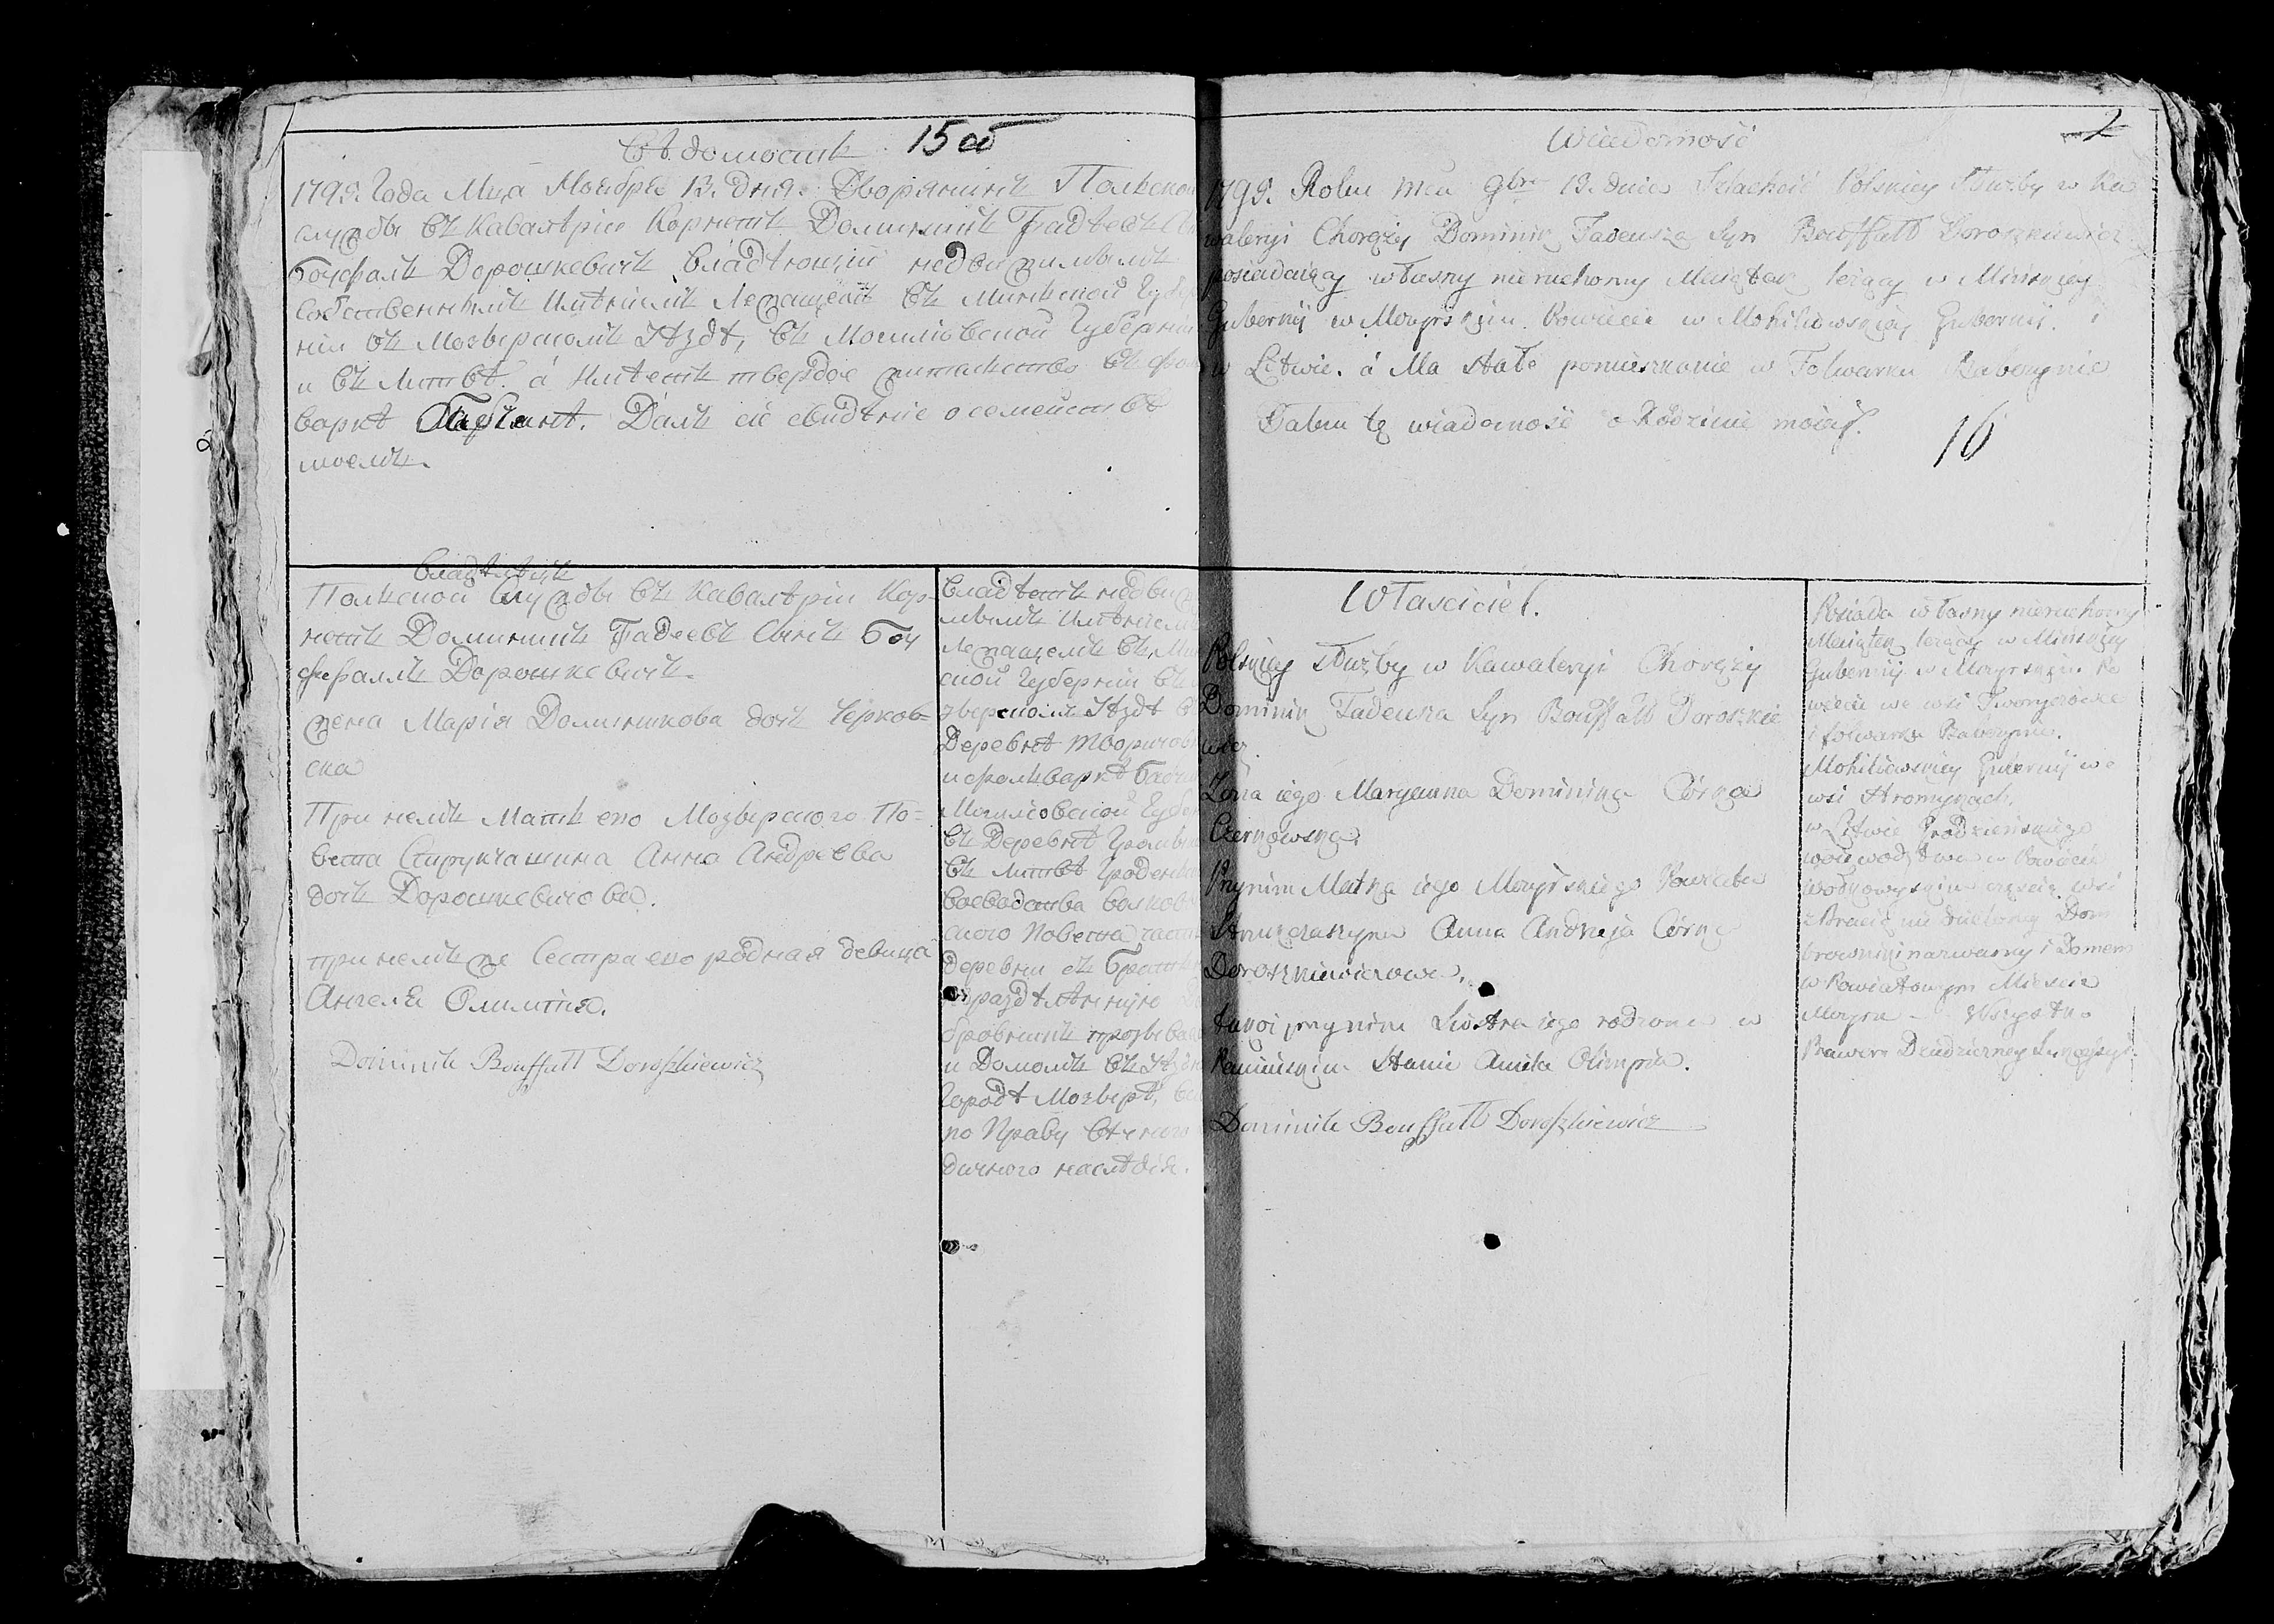 Вѣдомость
15 об
1795. Года Мца Ноября 13. Дня. Дворянинъ Польской
службы въ Кавалеріи Корнетъ Доминикъ Фадѣевъ
Боуфалъ Дорошкевичъ владѣющій недвижимымъ
собственнымъ имѣніемъ лежащемъ въ Минской Губер
ніи въ Мозырскомъ Уѣздѣ, въ Могилiовской Губерніи
и въ Литвѣ. а имѣетъ твердое жительство въ фол
варкѣ Бабчинѣ. Далъ сіе свидѣніе о семействѣ
моемъ.
Владѣлецъ
Польской Службы въ Кавалѣріи Кор-
нетъ Доминикъ Фадеевъ Сынъ Боу
фалъ Дорошкевичъ.
жена Марія Доминикова дочь Черков-
ска
При немъ Мать его Мозырского По-
вета Струкчашина Анна Андрѣева
дочь Дорошкевичова.
при немъ же Сестра его родная девица
Ангеля Олимпія.
Dominik Bouffałł Doroszkiewicz
владѣетъ недвиж
мымъ имѣніем
лежащемъ въ Мин
ской Губерніи въ
зверскомъ Уѣздѣ
Деревнѣ Творичов
и фольваркѣ Бабчи
Могилiовской Губер
въ Деревнѣ Громы
въ Литвѣ Гроденс
воеводства Волков
ского Повета част
деревни съ Братом
раздѣленную
бровникъ прозыва
и Домомъ въ Уѣзд
Городѣ Мозырѣ,
по Праву вѣчного
дичного наслѣдія.
Wiadomość
2
1795. Roku mca 9bra 13. dnia Szlachcic Polskiey Służby w Ka
waleryi Chorąży Dominik Tadeusza Syn Bouffałł Doroszkiewicz
posiadaiący własny nieruchomy Maiątek leżący w Mińskiey
Gubernii w Mozyrskim Powiecie w Mohilowskiey Gubernii. i
w Litwie. á Ma stałe pomieszkanie w Folwarku Babczynie
Dałem tę wiadomość o Rodzinie moiey.
16
Własciciel.
Polskiey służby w Kawaleryi Chorąży
Dominik Tadeusza Syn Bouffałł Doroszkie
wicz.
Żona iego Maryanna Dominika Córka
Czerkowska
Przy nim Matka iego Mozyrskiego Powiatu
Strukczaszyna Anna Andrzeja Córka
Doroszkiewiczowa.
tukoi przy nim Siostra iego rodzona w
Panieńskim Stanie Aniela Olimpia.
Dominik Bouffałł Doroszkiewicz
Posiada własny nieruchomy
Maiątek leżący w Mińskiey
Gubernii w Mozyrskim Po
wiecie we wsi Tworyczowce
i folwarku Babczynie.
Mohilowskiey Gubernii we
wsi Hromykach.
w Litwie Grodzieńskiego
woiewodztwa w Powiecie
Wołkowyskim częścią wsi
z Bracią nie dzieloney Dom
browniki nazwaney i Domem
w Powiatowym Miescie
Mozyru. Wszystko
Prawem Dziedziczney Sukcessyi.